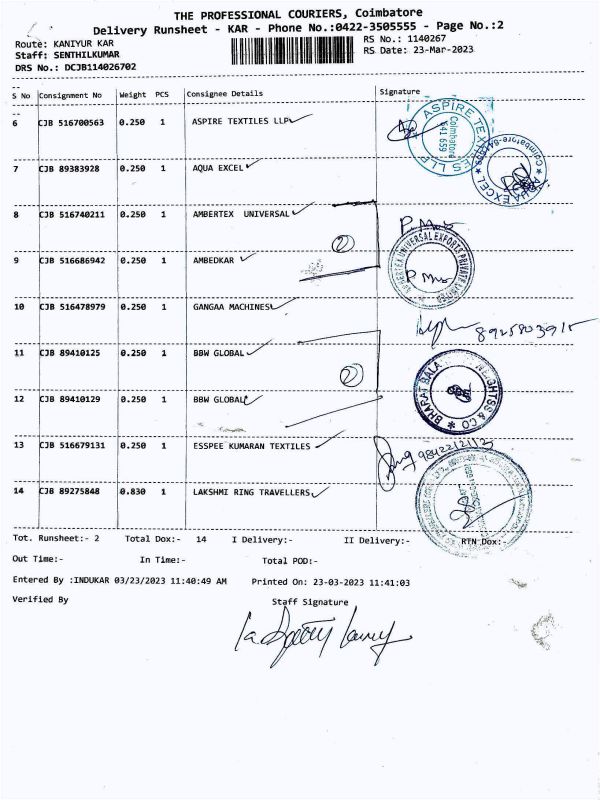 THE PROFESSIONAL COURIERS, Coimbatore
Delivery Runsheet - KAR - Phone No.:0422-3505555 - Page No.:2
Route: KANIYUR KAR
RS No.: 1140267
Staff: SENTHILKUMAR
RS Date: 23-Mar-2023
DRS No.: DCJB114026702
S No Consignment No Weight PCS Consignee Details Signature
6 CJB 516700563 0.250 1 ASPIRE TEXTILES LLP
ASPIRE TEXTILES LLP
Coimbatore
641 659
7 CJB 89383928 0.250 1 AQUA EXCEL
8 CJB 516740211 0.250 1 AMBERTEX UNIVERSAL
2
9 CJB 516686942 0.250 1 AMBEDKAR
10 CJB 516478979 0.250 1 GANGAA MACHINES
8925803915
11 CJB 89410125 0.250 1 BBW GLOBAL
2
12 CJB 89410129 0.250 1 BBW GLOBAL
13 CJB 516679131 0.250 1 ESSPEE KUMARAN TEXTILES
14 CJB 89275848 0.830 1 LAKSHMI RING TRAVELLERS
Tot. Runsheet:- 2 Total Dox:- 14 I Delivery:- II Delivery:- RTN Dox:-
Out Time:- In Time:- Total POD:-
Entered By :INDUKAR 03/23/2023 11:40:49 AM Printed On: 23-03-2023 11:41:03
Verified By Staff Signature